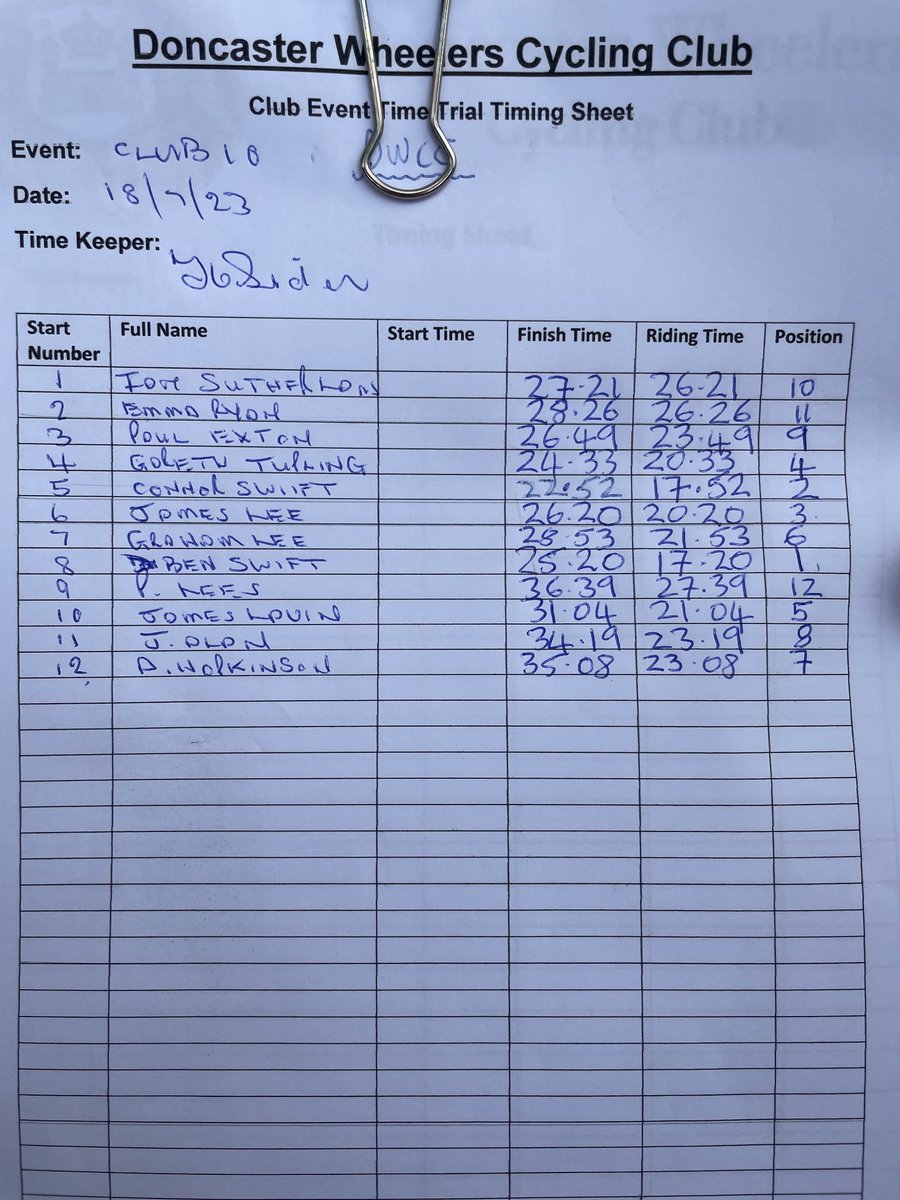 Doncaster Wheelers Cycling Club
Club Event Time Trial Timing Sheet
Event: CLUB 10 DWCC
Date: 18/7/23
Time Keeper:
Start Number Full Name Start Time Finish Time Riding Time Position
1 SUTHERLAND 27.21 26.21 10
2 EMMA RYAN 28.26 26.26 11
3 PAUL EXTON 26.49 23.49 9
4 GARETH 24.33 20.33 4
5 CONNOR SWIIFT 22.52 17.52 2
6 JAMES LEE 26.20 20.20 3
7 GRAHAM LEE 28.53 21.53 6
8 BEN SWIFT 25.20 17.20 1
9 P. LEES 36.39 27.39 12
10 JAMES LOUIN 31.04 21.04 5
11 J. 34.19 23.19 8
12 35.08 23.08 7